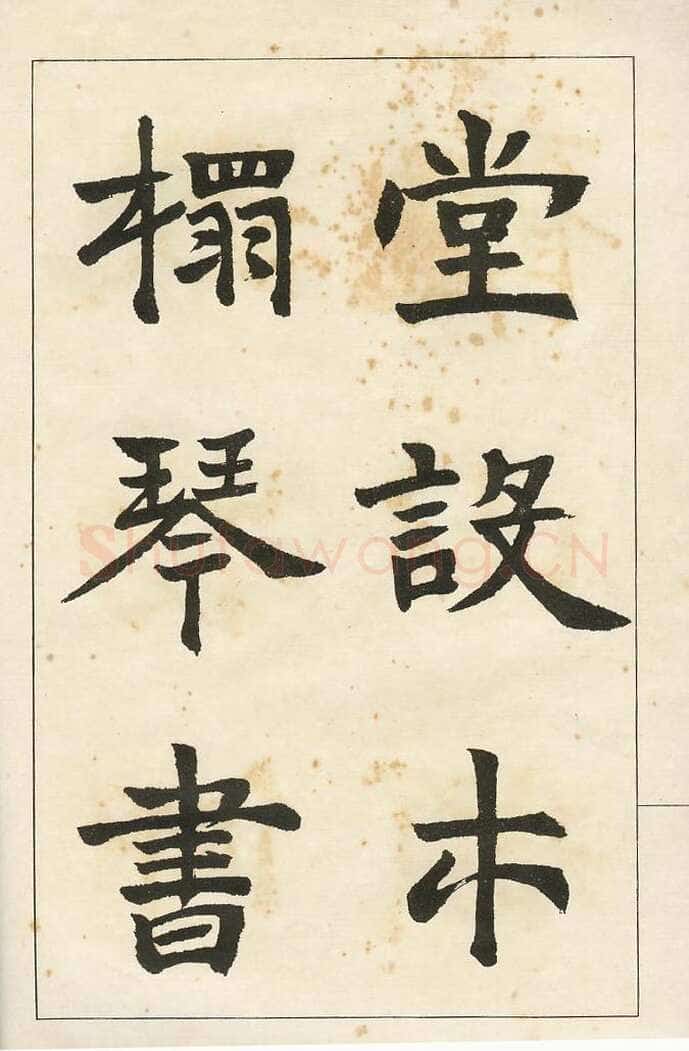 堂設木
榻琴書
Shufawang.CN